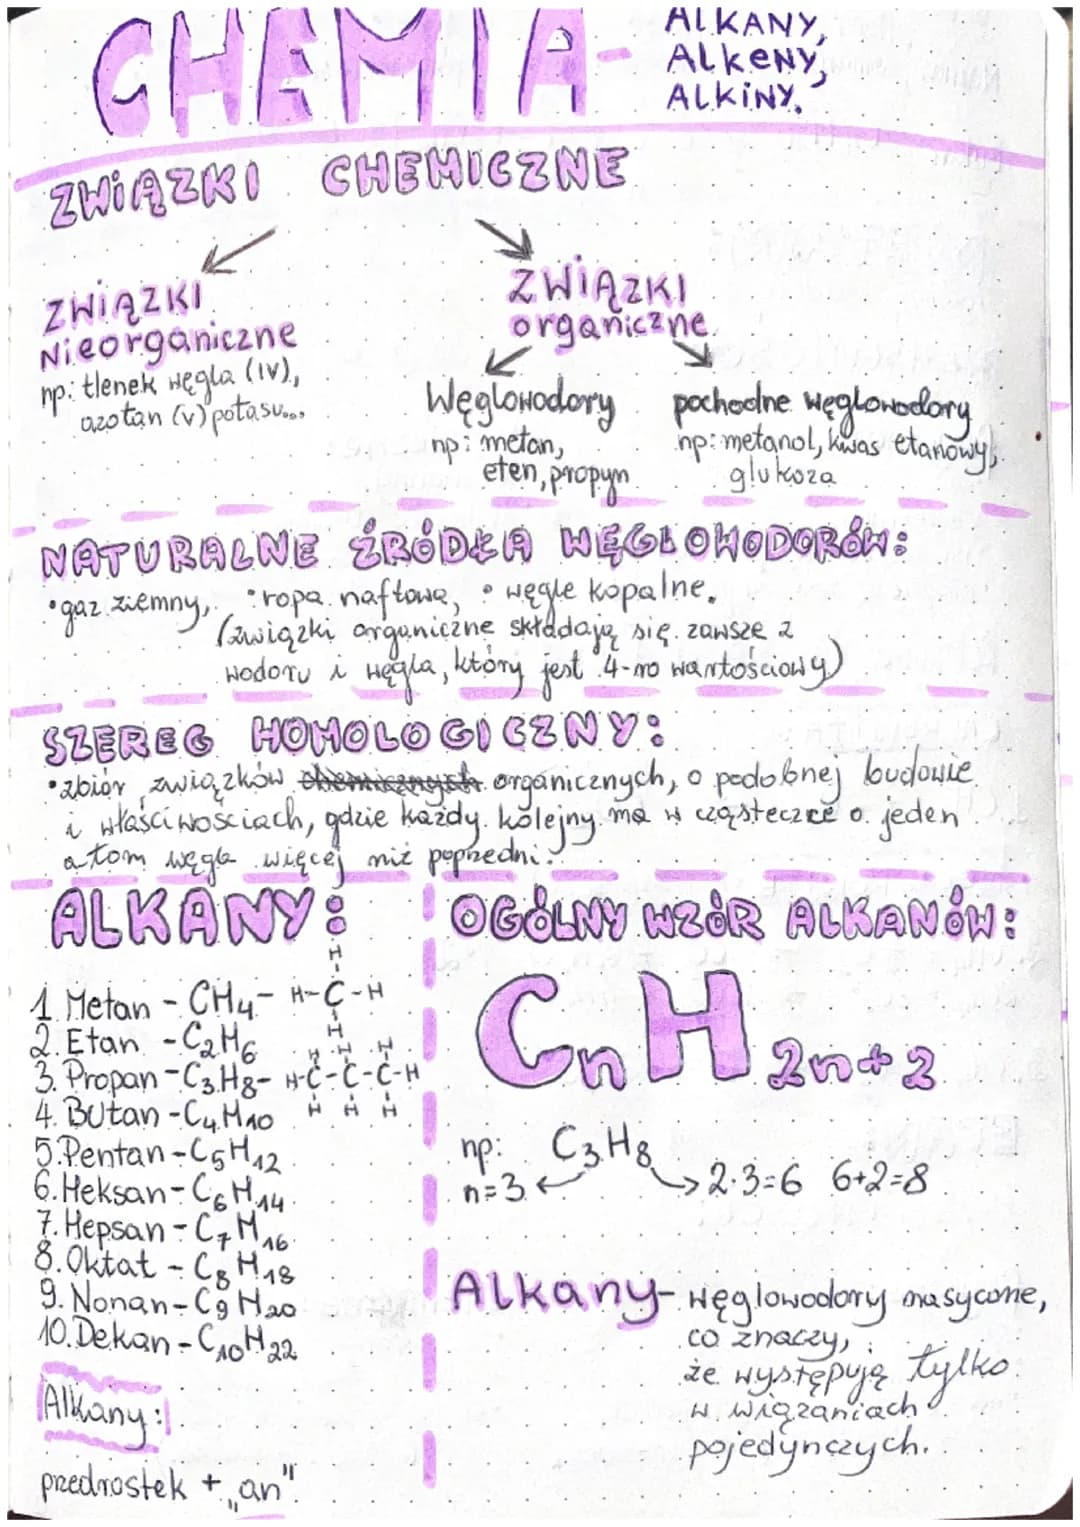 CHEMIA-
ALKANY,
ALKENY,
ALKINY.
ZWIĄZKI CHEMICZNE
ZWIĄZKI
Nieorganiczne
np: tlenek węgla (IV),
azotan (v) potasu...
ZWIĄZKI
organiczne
Węglowodory
np: metan,
eten, propyn
pochodne węglowodory
np: metanol, kwas etanowy,
glukoza
NATURALNE ŹRÓDŁA WĘGLOWODORÓW:
•gaz ziemny, •ropa naftowa, • węgle kopalne.
(związki organiczne składają się zawsze z
wodoru i węgla, który jest 4-ro wartościowy)
SZEREG HOMOLOGICZNY:
•zbiór związków chemicznych organicznych, o podobnej budowie
i właściwosciach, gdzie każdy kolejny ma w cząsteczce o jeden
atom węgla więcej niż poprzedni.
ALKANY:
1. Metan - CH4-
H
H-C-H
H
2. Etan - C2H6
3. Propan - C3H8-
H H H
H-C-C-C-H
H H H
4. Butan - C4H10
5. Pentan - C5H12
6. Heksan - C6H14
7. Hepsan - C7H16
8. Oktat - C8H18
9. Nonan - C9H20
10. Dekan - C10H22
Alkany:
przedrostek + „an"
OGÓLNY WZÓR ALKANÓW:
CnH2n+2
np: C3H8
n=3 2·3=6 6+2=8
Alkany- węglowodory nasycone,
co znaczy,
że występują tylko
w wiązaniach
pojedynczych.